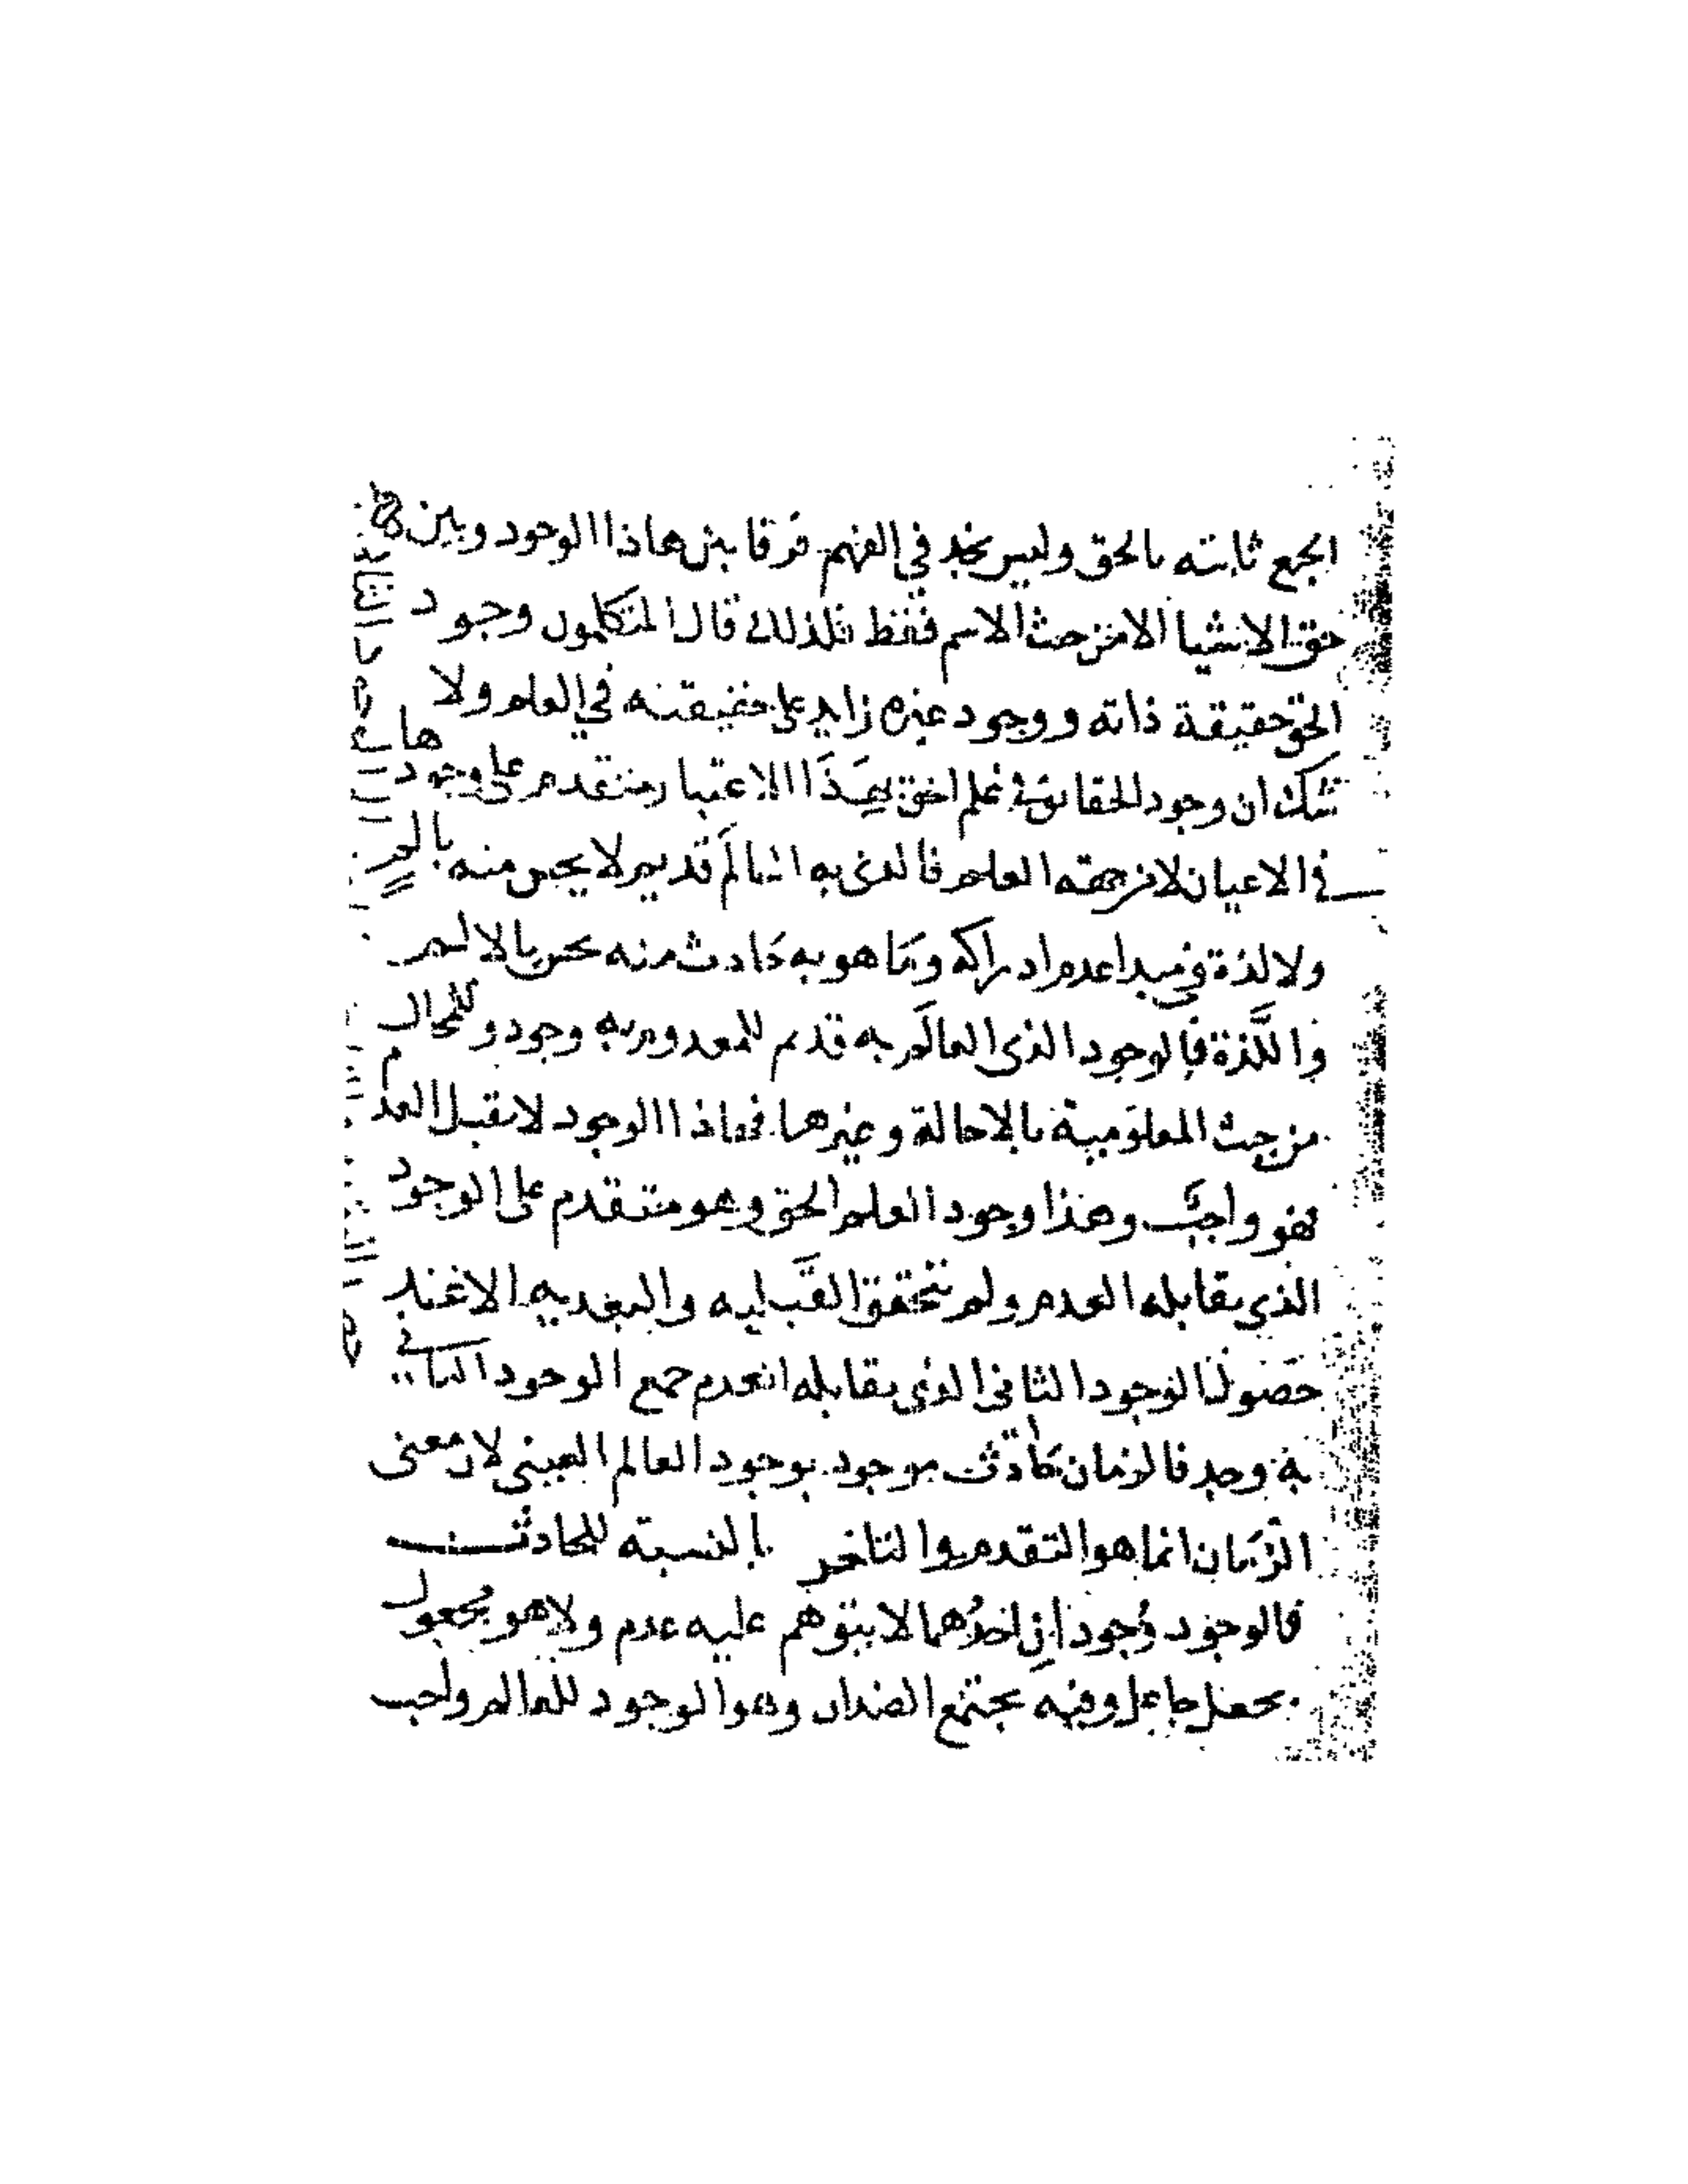 الجمع ثابته بالحق وليس نجد في الفهم فرقا بين هاذا الوجود وبين
حق الاشيا الا من حيث الاسم فقط فلذلك قال المتكلمون وجود
الحق حقيقة ذاته ووجود غيره زايد على حقيقته في العلم ولا
شك ان وجود الحقائق في علم الحق بهذا الاعتبار متقدم على وجودها
في الاعيان لا من جهة العلم فالذي به العالم قديم لا يحس منه بالم
ولا لذة في مبدا عدم ادراكه وما هو به حادث منه يحس بالالم
واللذة فالوجود الذي العالم به قديم للمعدوم به وجود وللمحال
من حيث المعلومية بالاحالة وغيرها فهاذا الوجود لا يقبل العدم
فهو واجب وهذا وجود العلم الحق وهو متقدم على الوجود
الذي يقابله العدم ولم تتحقق القبليه والبعديه الا عند
حصول الوجود الثاني الذي يقابله العدم جمع الوجود الثاني
به وجد فالزمان حادث موجود بوجود العالم العيني لان معنى
الزمان انما هو التقدم والتاخر بالنسبة للحادث
فالوجود وجودان احدهما لا يتوهم عليه عدم ولا هو مجعول
بجعل جاعل وفيه يجتمع الضدان وهو الوجود للعالم واجب